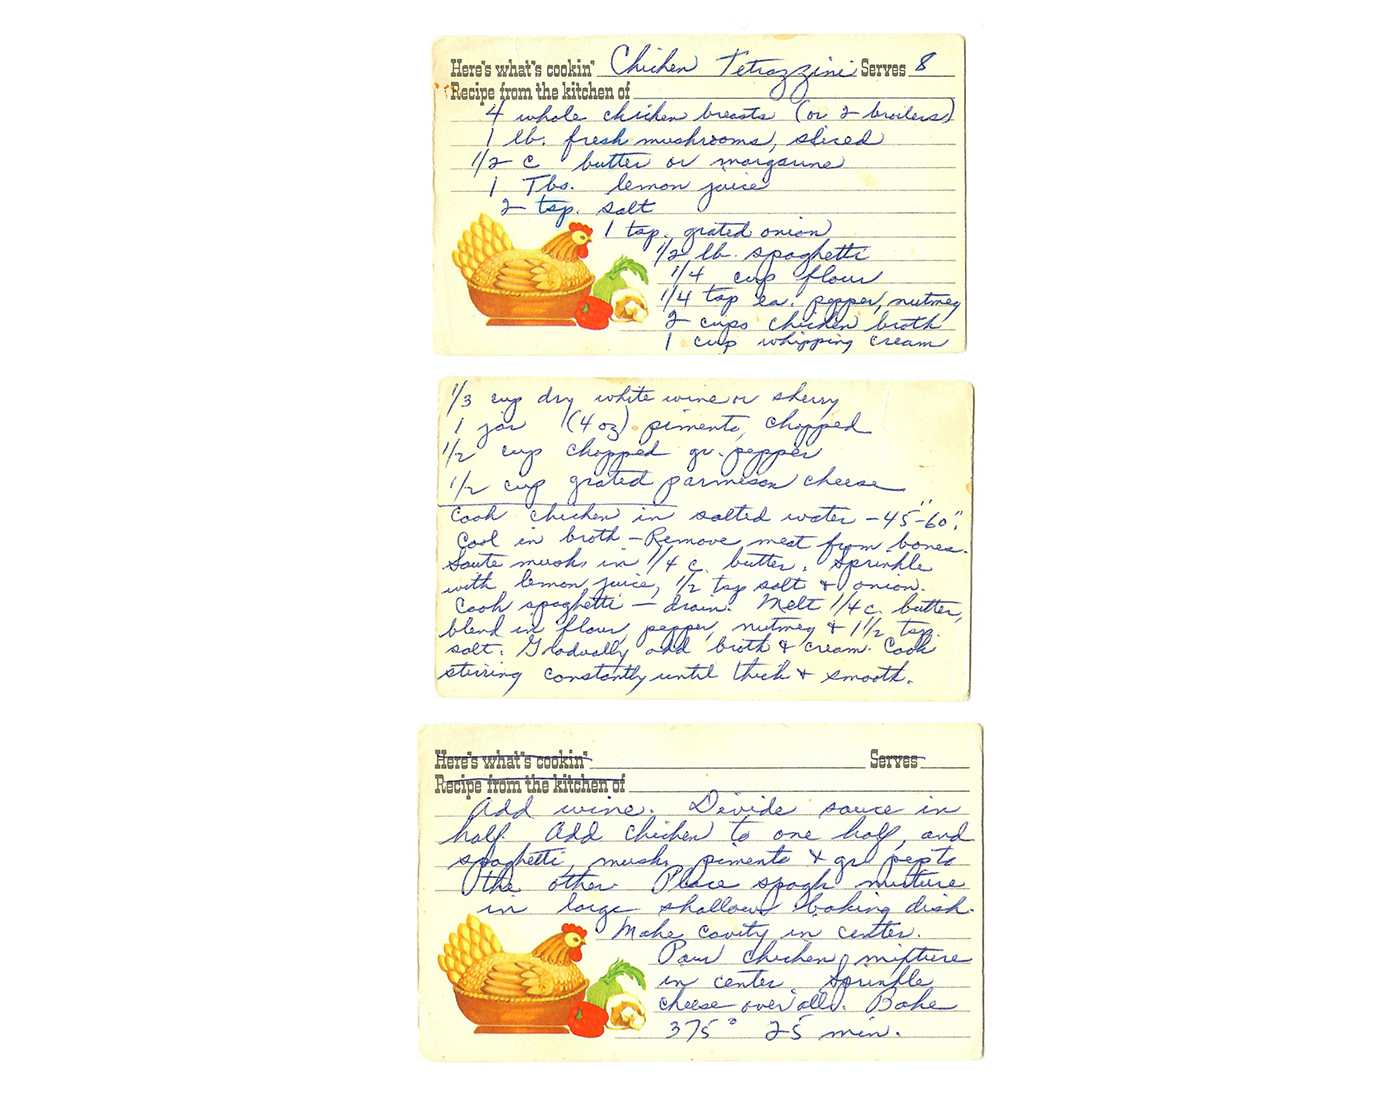 Here's what's cookin' Chicken Tetrazzini Serves 8
Recipe from the kitchen of
4 whole chicken breasts (or 2 broilers)
1 lb. fresh mushrooms, sliced
1/2 c butter or margarine
1 Tbs. lemon juice
2 tsp. salt
1 tsp. grated onion
1/2 lb. spaghetti
1/4 cup flour
1/4 tsp ea. pepper, nutmeg
2 cups chicken broth
1 cup whipping cream
1/3 cup dry white wine or sherry
1 jar (4 oz) pimento, chopped
1/2 cup chopped gr. pepper
1/2 cup grated parmeson cheese
Cook chicken in salted water - 45"-60".
Cool in broth - Remove meat from bones.
Saute mush. in 1/4 c. butter. Sprinkle
with lemon juice, 1/2 tsp salt & onion.
Cook spaghetti - drain. Melt 1/4 c. butter,
blend in flour, pepper, nutmeg & 1 1/2 tsp.
salt. Gradually add broth & cream. Cook
stirring constantly until thick & smooth.
Here's what's cookin' Serves
Recipe from the kitchen of
Add wine. Divide sauce in
half. Add chicken to one half, and
spaghetti, mush, pimento & gr pep to
the other. Place spagh mixture
in large shallow baking dish.
Make cavity in center.
Pour chicken mixture
in center. Sprinkle
cheese over all. Bake
375° 25 min.